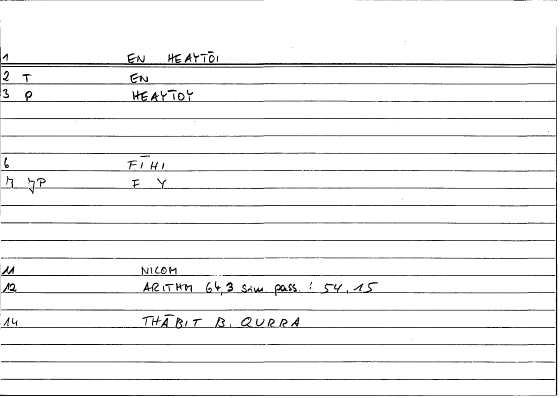 1 EN HEAYTŌI
2 T EN
3 P HEAYTOY
6 FĪHI
F Y
11 NICOM
12 ARITHM 64,3 sim. pass. ! 54,15
14 THĀBIT B. QURRA